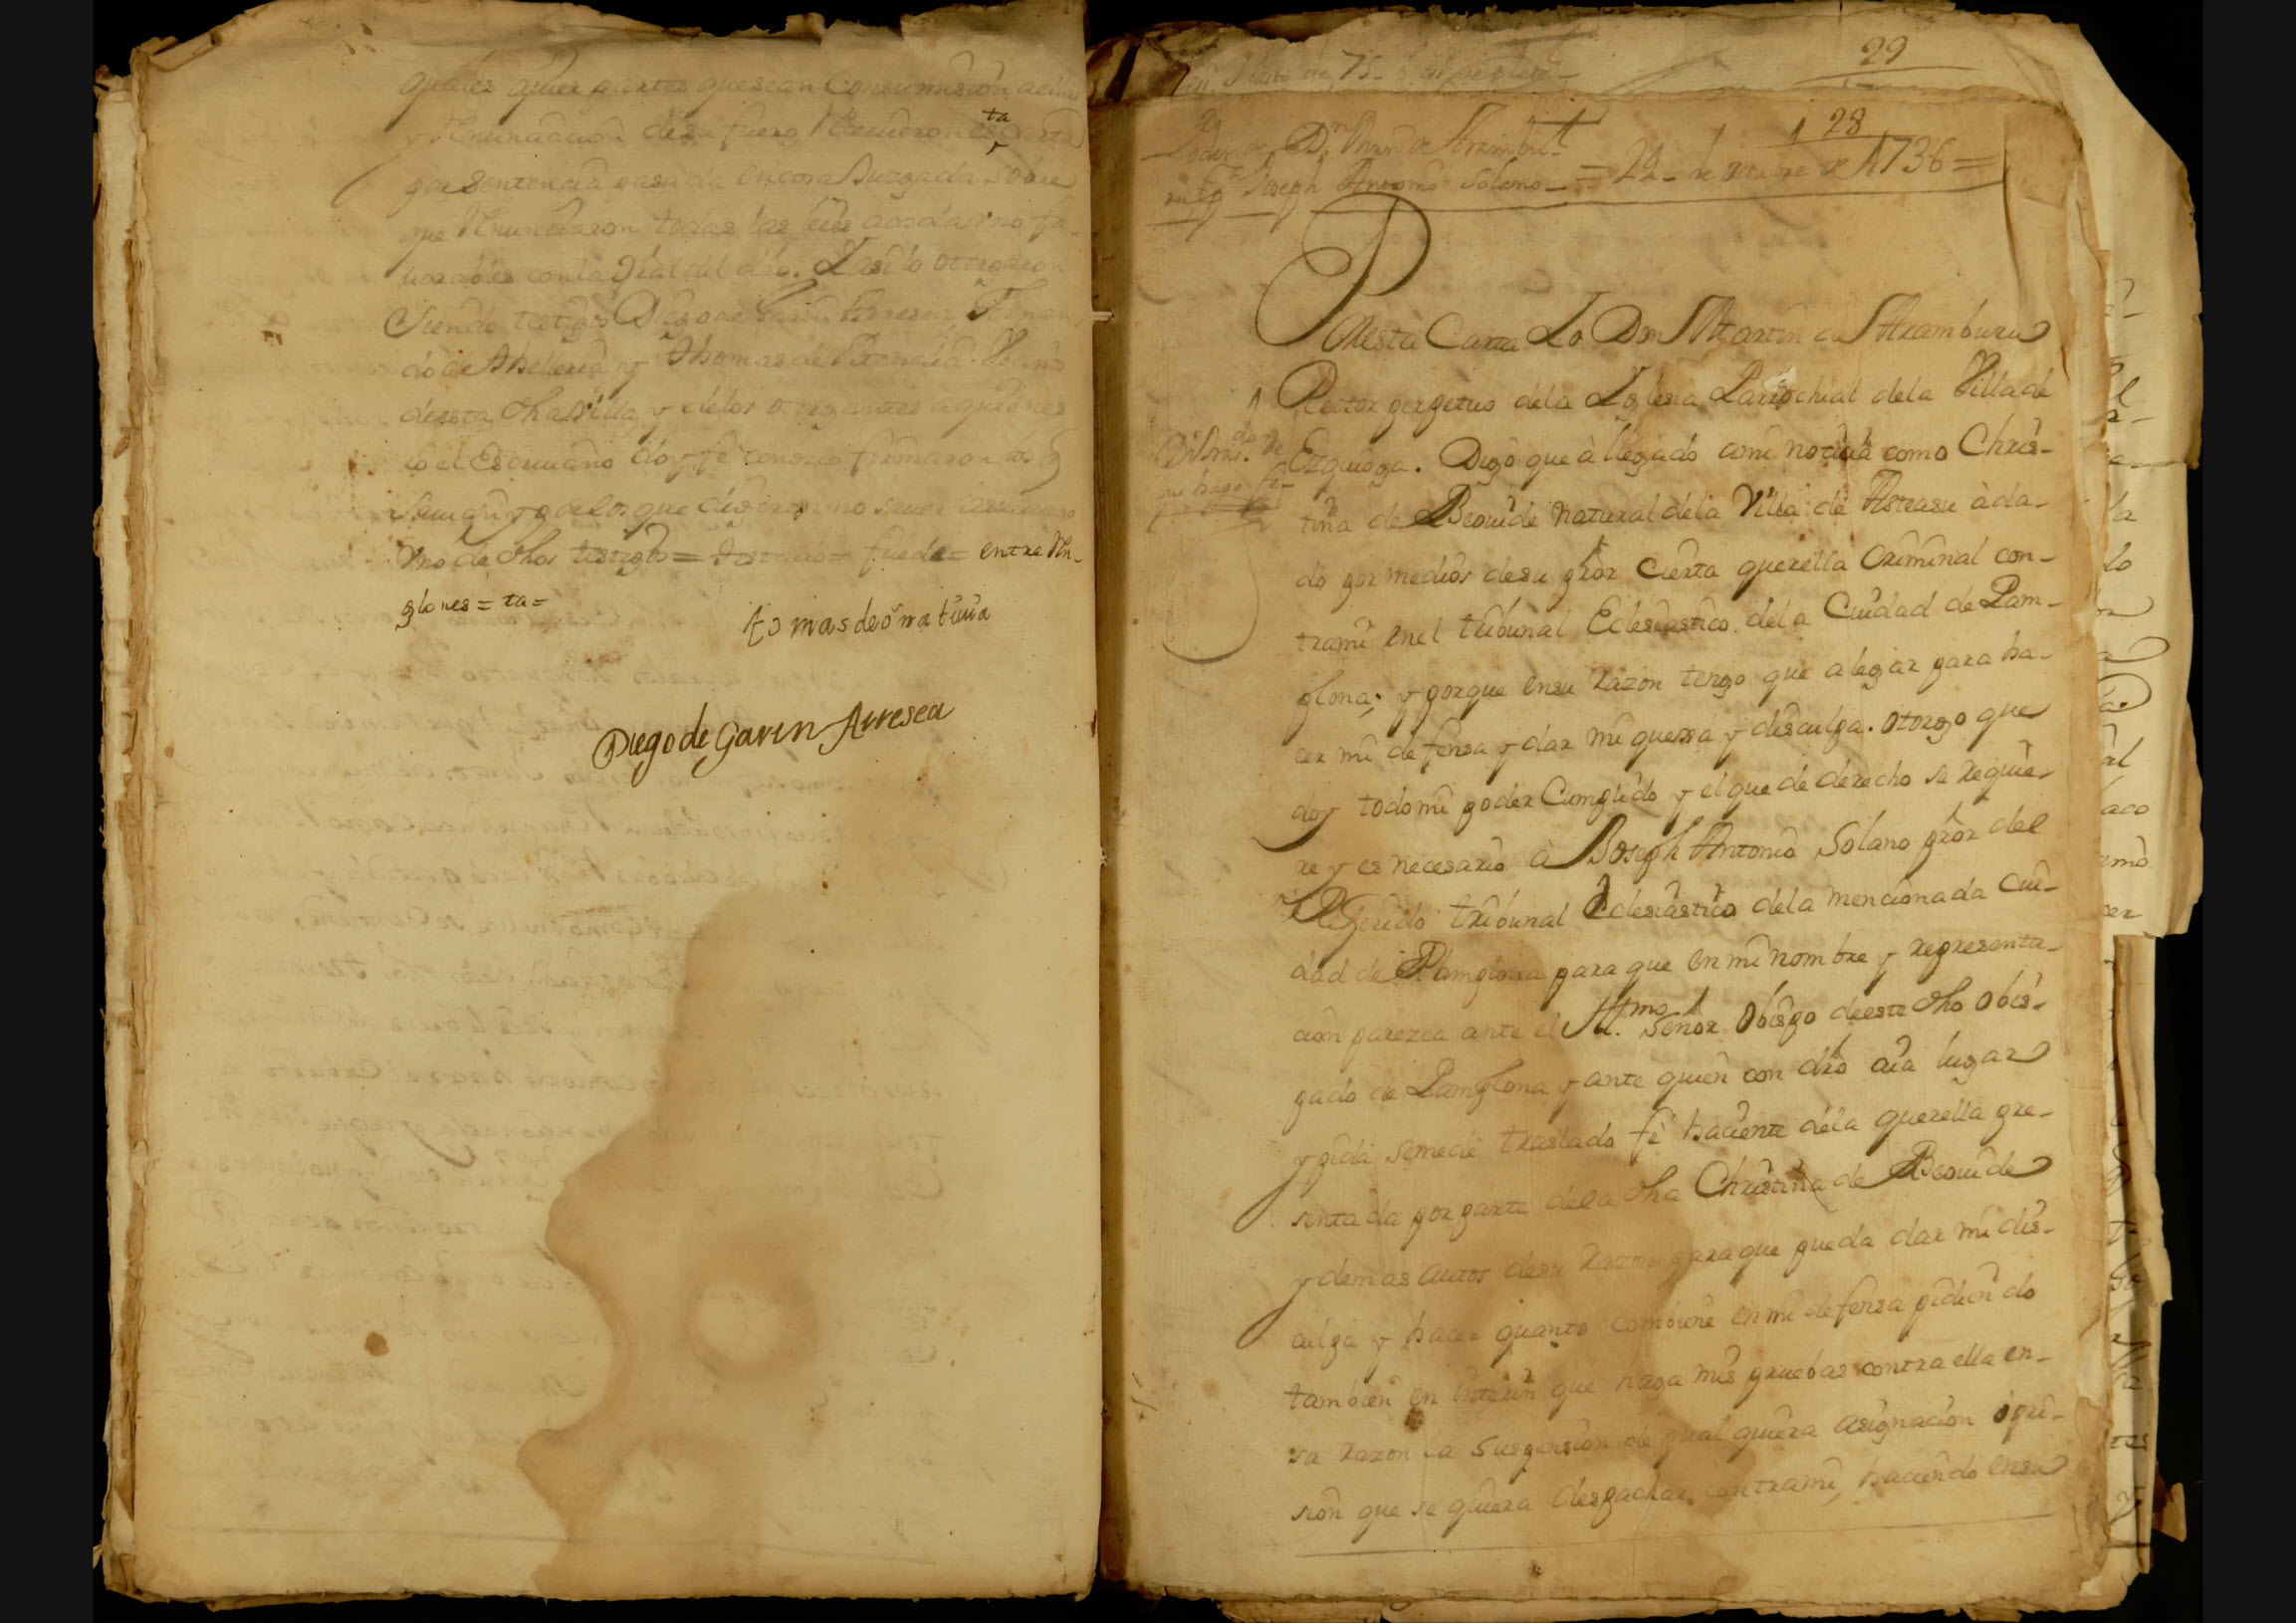 quales quier partes que sean con sumision a ellas
y Renunciacion de su fuero Reciuieron esta carta
por sentencia pasada en cosa Juzgada sobre
que Renunciaron todas las leies
uorables con la Gral del dro. Y asi lo otorgaron
Siendo testigos Diego de Garin Arresea, Fernan
do de Abelleria y Thomas de
de esta dha Villa, y de los otorgantes a quienes
io el Escriuano doy fe conozco firmaron los q
sauian y por los que dijeron no sauer
Vno de dhos testigos = testado = fuede = entre Rn-
glones = ta =
tomas de oñatiuia
Diego de Garin Arresea
29
28
Poder de Dn Martin de Aramburu
Joseph Antonio Solano = 22 de octubre de 1736 =
Por esta Carta Yo Don Martin de Aramburu
Rector perpetuo de la Yglesia Parrochial de la Villa de
Ezquioga. Digo que à llegado a mi noticia como Chris-
que hago fe
tina de Beouide natural de la Villa de Asteasu à da-
do por medios de su pror cierta querella Criminal con-
tra mi en el tribunal Eclesiastico de la Ciudad de Pam-
plona; y porque en su razon tengo que alegar para ha-
cer mi defensa y dar mi quexa y disculpa. otorgo que
doy todo mi poder Cumplido y el que de derecho se requie-
re y es necesario à Joseph Antonio Solano pror del
Referido tribunal Eclesiastico de la mencionada Ciu-
dad de Pamplona para que en mi nombre y representa-
cion parezca ante el Illmo Señor Obispo de este dho obis-
pado de Pamplona y ante quien con dro aia lugar
y pida se me dè traslado fè haciente de la querella pre-
sentada por parte de la dha Christina de Beouide
y demas autos de su razon para que pueda dar mi dis-
culpa y hacer quanto combiene en mi defensa pidiendo
tambien en interin que haga mis pruebas contra ella en-
su razon la suspension de qual quiera asignacion ò pri-
sion que se quiera despachar contra mi, haciendo en su